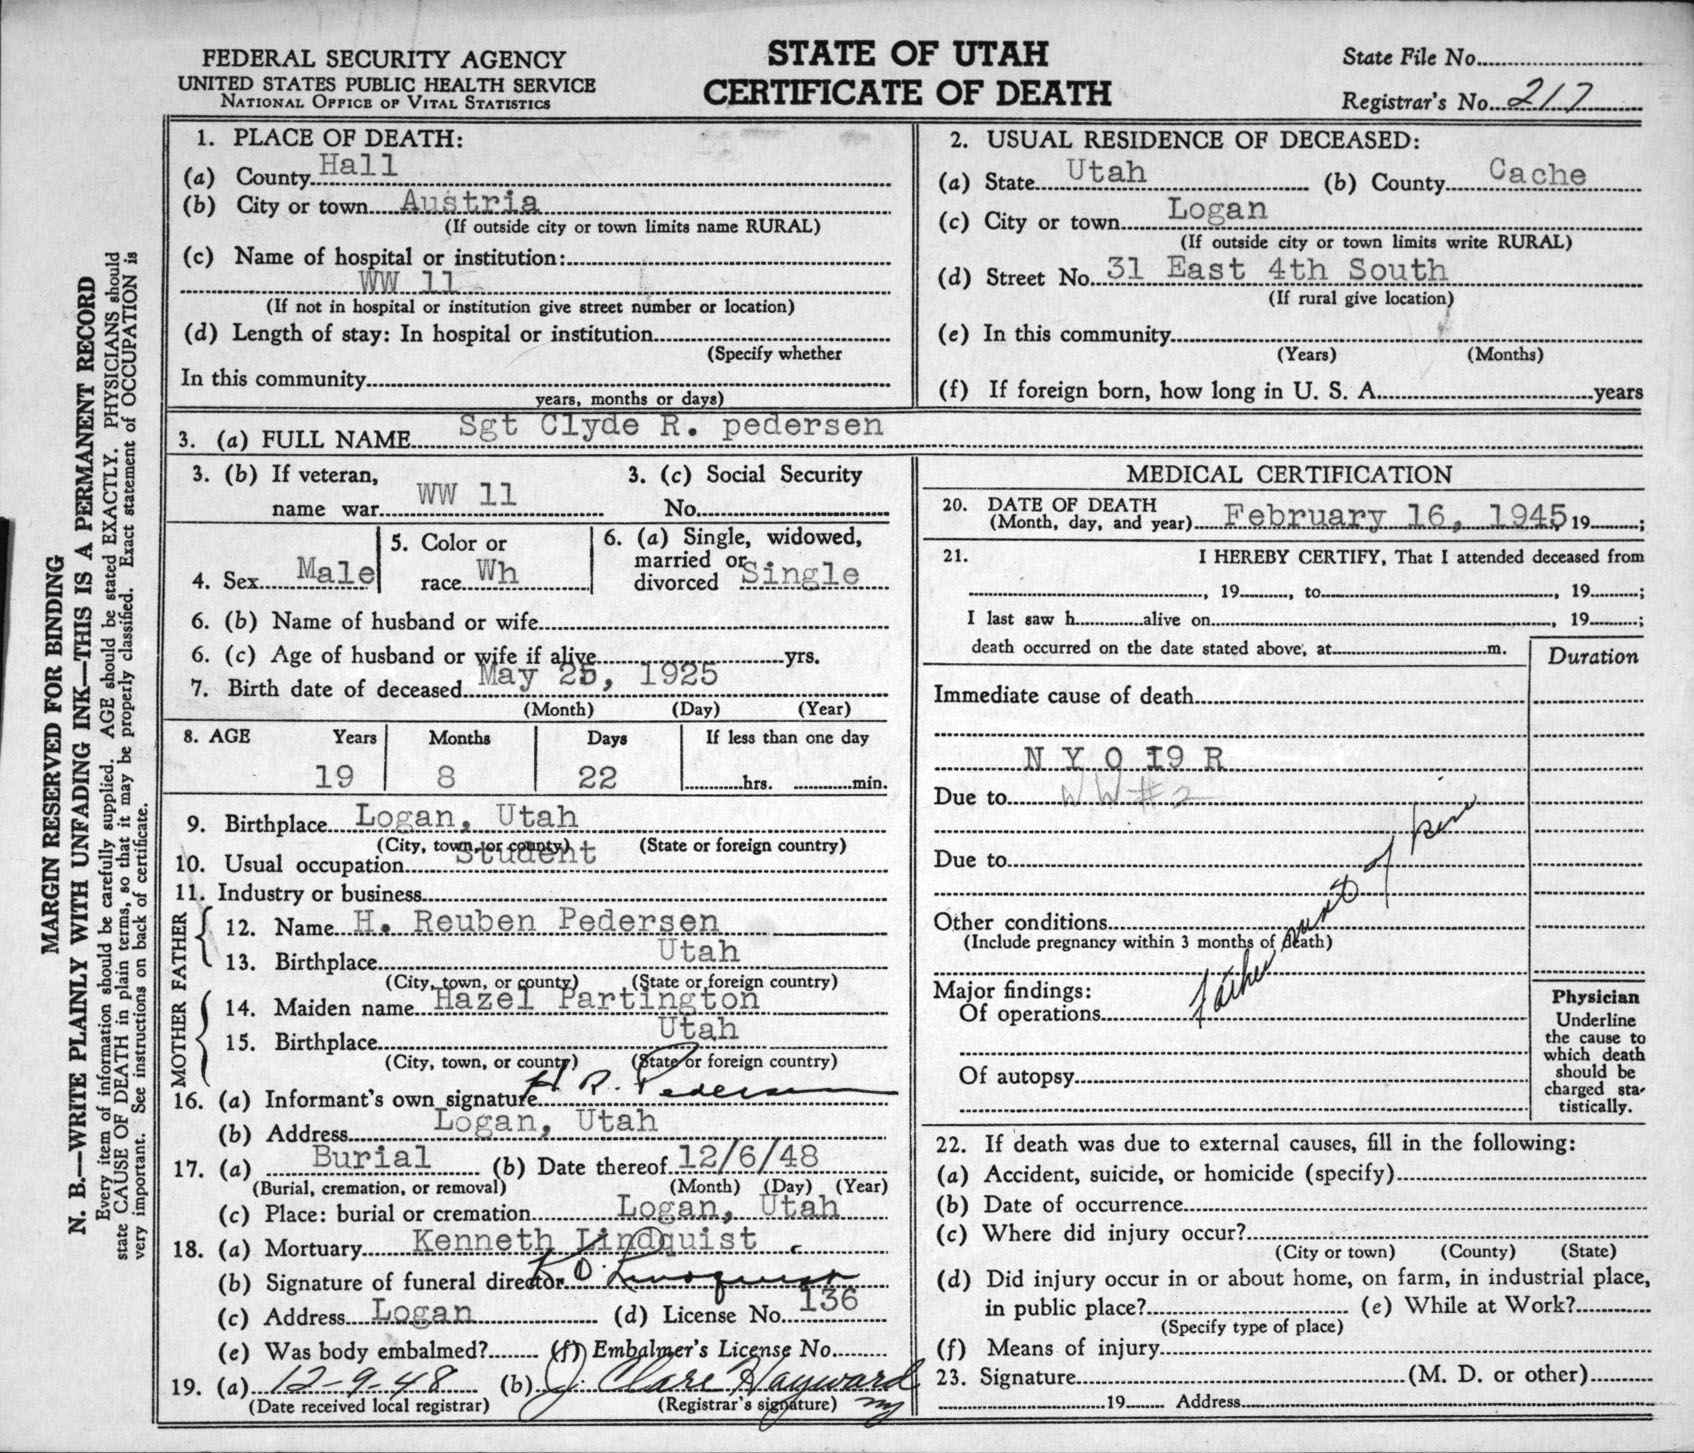 FEDERAL SECURITY AGENCY
UNITED STATES PUBLIC HEALTH SERVICE
NATIONAL OFFICE OF VITAL STATISTICS
STATE OF UTAH
CERTIFICATE OF DEATH
State File No.
Registrar's No. 217
MARGIN RESERVED FOR BINDING
N. B.—WRITE PLAINLY WITH UNFADING INK—THIS IS A PERMANENT RECORD
Every item of information should be carefully supplied. AGE should be stated EXACTLY. PHYSICIANS should
state CAUSE OF DEATH in plain terms, so that it may be properly classified. Exact statement of OCCUPATION is
very important. See instructions on back of certificate.
1. PLACE OF DEATH:
(a) County Hall
(b) City or town Austria
(If outside city or town limits name RURAL)
(c) Name of hospital or institution:
WW 11
(If not in hospital or institution give street number or location)
(d) Length of stay: In hospital or institution
(Specify whether
In this community
years, months or days)
2. USUAL RESIDENCE OF DECEASED:
(a) State Utah (b) County Cache
(c) City or town Logan
(If outside city or town limits write RURAL)
(d) Street No. 31 East 4th South
(If rural give location)
(e) In this community
(Years) (Months)
(f) If foreign born, how long in U. S. A. years
3. (a) FULL NAME Sgt Clyde R. pedersen
3. (b) If veteran,
name war WW 11
3. (c) Social Security
No.
4. Sex Male
5. Color or
race Wh
6. (a) Single, widowed,
married or
divorced Single
6. (b) Name of husband or wife
6. (c) Age of husband or wife if alive yrs.
7. Birth date of deceased May 25, 1925
(Month) (Day) (Year)
8. AGE Years Months Days If less than one day
19 8 22 hrs. min.
9. Birthplace Logan, Utah
(City, town, or county) (State or foreign country)
10. Usual occupation Student
11. Industry or business
FATHER
12. Name H. Reuben Pedersen
13. Birthplace Utah
(City, town, or county) (State or foreign country)
MOTHER
14. Maiden name Hazel Partington
15. Birthplace Utah
(City, town, or county) (State or foreign country)
16. (a) Informant's own signature H. R. Pedersen
(b) Address Logan, Utah
17. (a) Burial (b) Date thereof 12/6/48
(Burial, cremation, or removal) (Month) (Day) (Year)
(c) Place: burial or cremation Logan, Utah
18. (a) Mortuary Kenneth Lindquist
(b) Signature of funeral director K O. Lindquist
(c) Address Logan (d) License No. 136
(e) Was body embalmed? (f) Embalmer's License No.
19. (a) 12-9-48 (b) J. Clare Hayward
(Date received local registrar) (Registrar's signature)
MEDICAL CERTIFICATION
20. DATE OF DEATH
(Month, day, and year) February 16, 1945 19 ;
21. I HEREBY CERTIFY, That I attended deceased from
, 19 , to , 19 ;
I last saw h alive on , 19 ;
death occurred on the date stated above, at m.
Duration
Immediate cause of death
N Y O I9 R
Due to WW#2
Due to
Other conditions
(Include pregnancy within 3 months of death)
Father next of kin
Major findings:
Of operations
Of autopsy
Physician
Underline
the cause to
which death
should be
charged sta-
tistically.
22. If death was due to external causes, fill in the following:
(a) Accident, suicide, or homicide (specify)
(b) Date of occurrence
(c) Where did injury occur?
(City or town) (County) (State)
(d) Did injury occur in or about home, on farm, in industrial place,
in public place? (e) While at Work?
(Specify type of place)
(f) Means of injury
23. Signature (M. D. or other)
19 Address